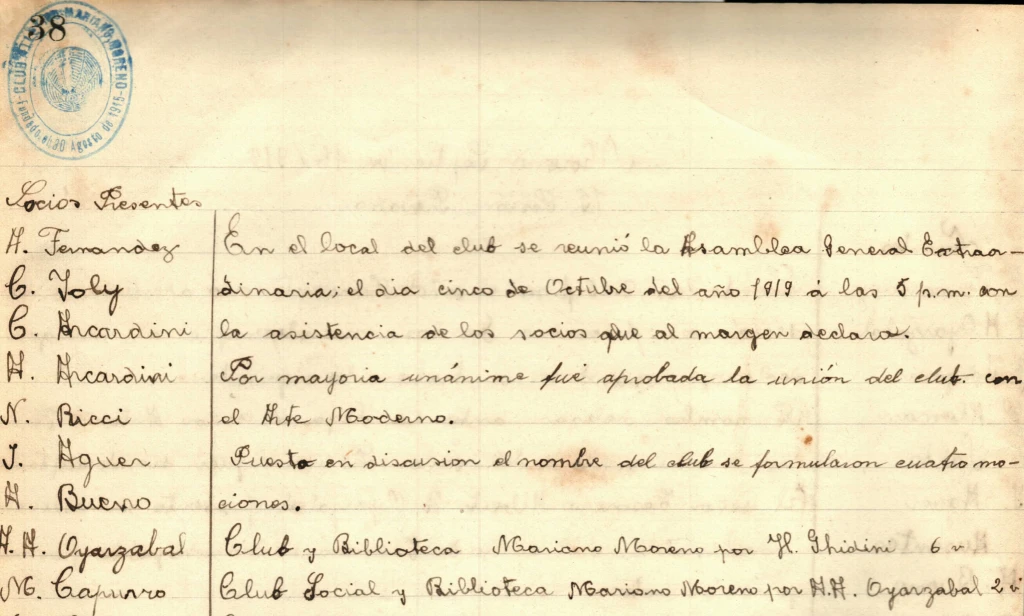 38
CLUB MARIANO MORENO
Fundado el 30 Agosto de 1915
Socios Presentes
A. Fernandez
C. Joly
C. Arcardini
A. Arcardini
N. Ricci
J. Aguer
A. Bueno
A. A. Oyarzabal
M. Capurro
En el local del club se reunió la Asamblea General Extraor-
dinaria; el dia cinco de Octubre del año 1919 á las 5 p.m. con
la asistencia de los socios que al margen declara.
Por mayoria unánime fué aprobada la unión del club con
el Arte Moderno.
Puesto en discusion el nombre del club se formularon cuatro mo-
ciones.
Club y Biblioteca Mariano Moreno por H. Ghidini 6 v
Club Social y Biblioteca Mariano Moreno por A.A. Oyarzabal 2 v